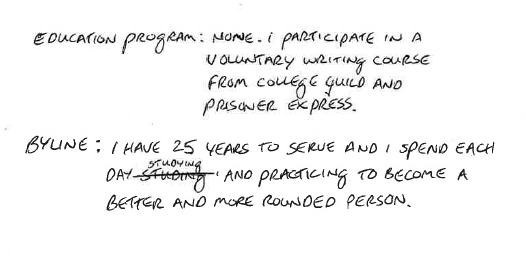 EDUCATION PROGRAM: NONE. I PARTICIPATE IN A
VOLUNTARY WRITING COURSE
FROM COLLEGE GUILD AND
PRISONER EXPRESS.
BYLINE: I HAVE 25 YEARS TO SERVE AND I SPEND EACH
STUDYING
DAY STUDING AND PRACTICING TO BECOME A
BETTER AND MORE ROUNDED PERSON.